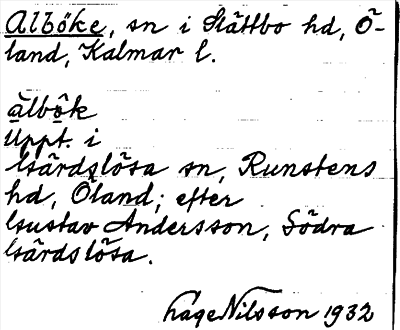 Alböke, sn i Slättbo hd, Ö-
land, Kalmar l.
àlbö̀k
Uppt. i
Gärdslösa sn, Runstens
hd, Öland; efter
Gustav Andersson, Södra
Gärdslösa.
Åge Nilsson 1932